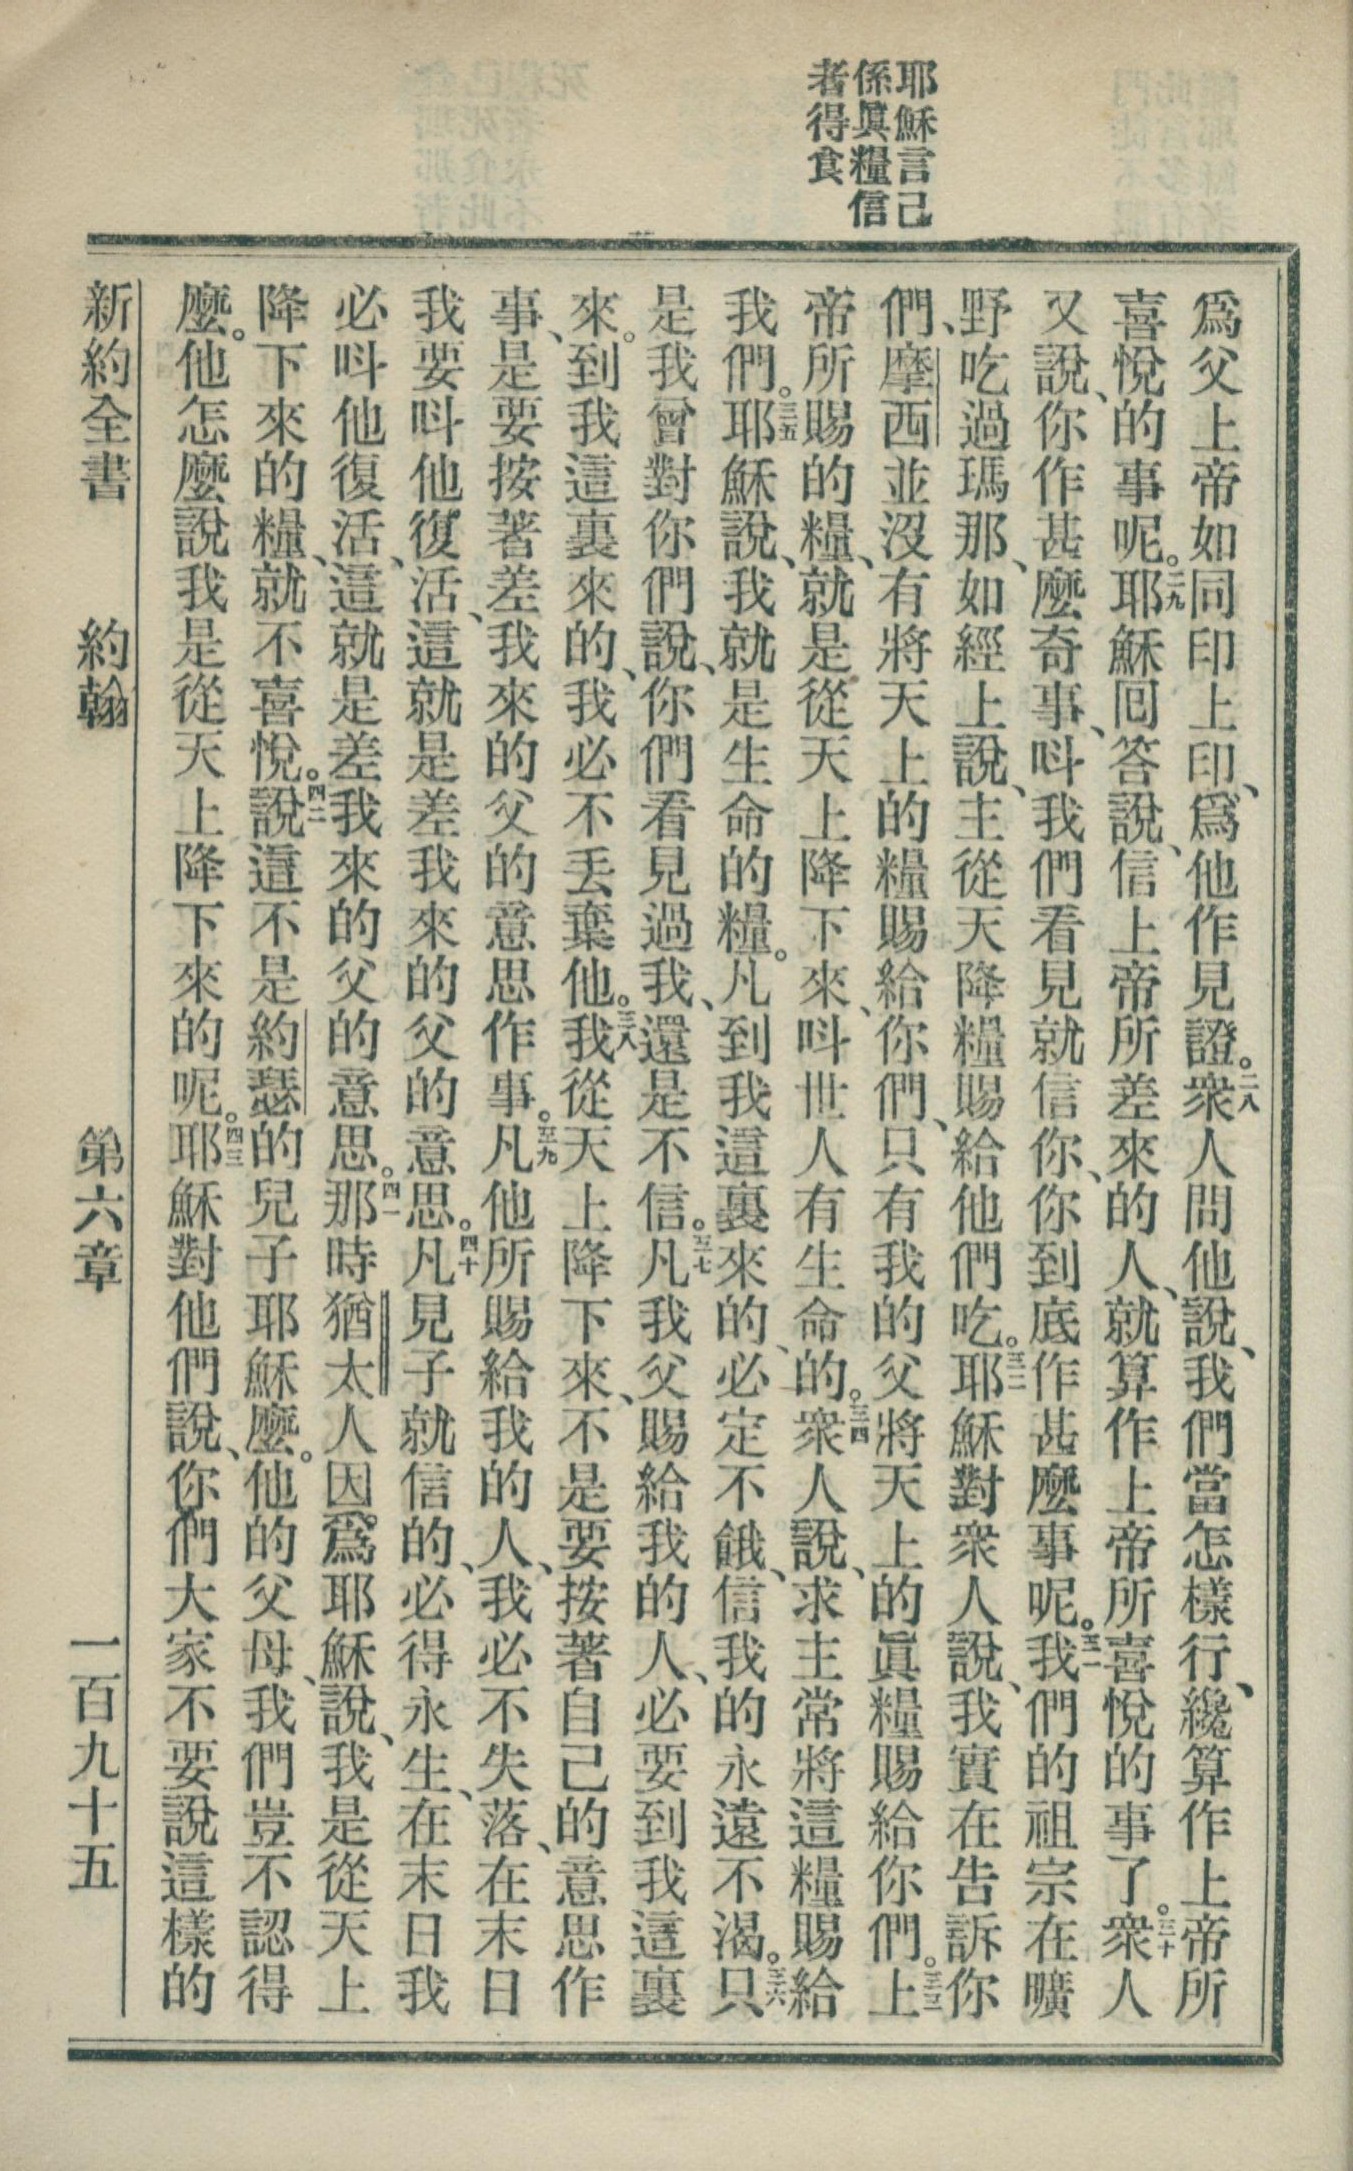 耶穌言己
係眞糧信
者得食
爲父上帝如同印上印、爲他作見證。二八衆人問他說、我們當怎樣行、纔算作上帝所
喜悅的事呢。二九耶穌回答說、信上帝所差來的人、就算作上帝所喜悅的事了。三十衆人
又說、你作甚麼奇事、呌我們看見就信你、你到底作甚麼事呢。三一我們的祖宗在曠
野吃過瑪那、如經上說、主從天降糧賜給他們吃。三二耶穌對衆人說、我實在告訴你
們、摩西並沒有將天上的糧賜給你們、只有我的父將天上的眞糧賜給你們。三三上
帝所賜的糧、就是從天上降下來、呌世人有生命的。三四衆人說、求主常將這糧賜給
我們。三五耶穌說、我就是生命的糧。凡到我這裏來的、必定不餓、信我的永遠不渴。三六只
是我曾對你們說、你們看見過我、還是不信。三七凡我父賜給我的人、必要到我這裏
來。到我這裏來的、我必不丟棄他。三八我從天上降下來、不是要按著自己的意思作
事、是要按著差我來的父的意思作事。三九凡他所賜給我的人、我必不失落、在末日
我要呌他復活、這就是差我來的父的意思。四十凡見子就信的、必得永生、在末日我
必呌他復活、這就是差我來的父的意思。四一那時猶太人因爲耶穌說、我是從天上
降下來的糧、就不喜悅。四二說這不是約瑟的兒子耶穌麼。他的父母、我們豈不認得
麼。他怎麼說我是從天上降下來的呢。四三耶穌對他們說、你們大家不要說這樣的
新約全書　約翰　第六章　一百九十五